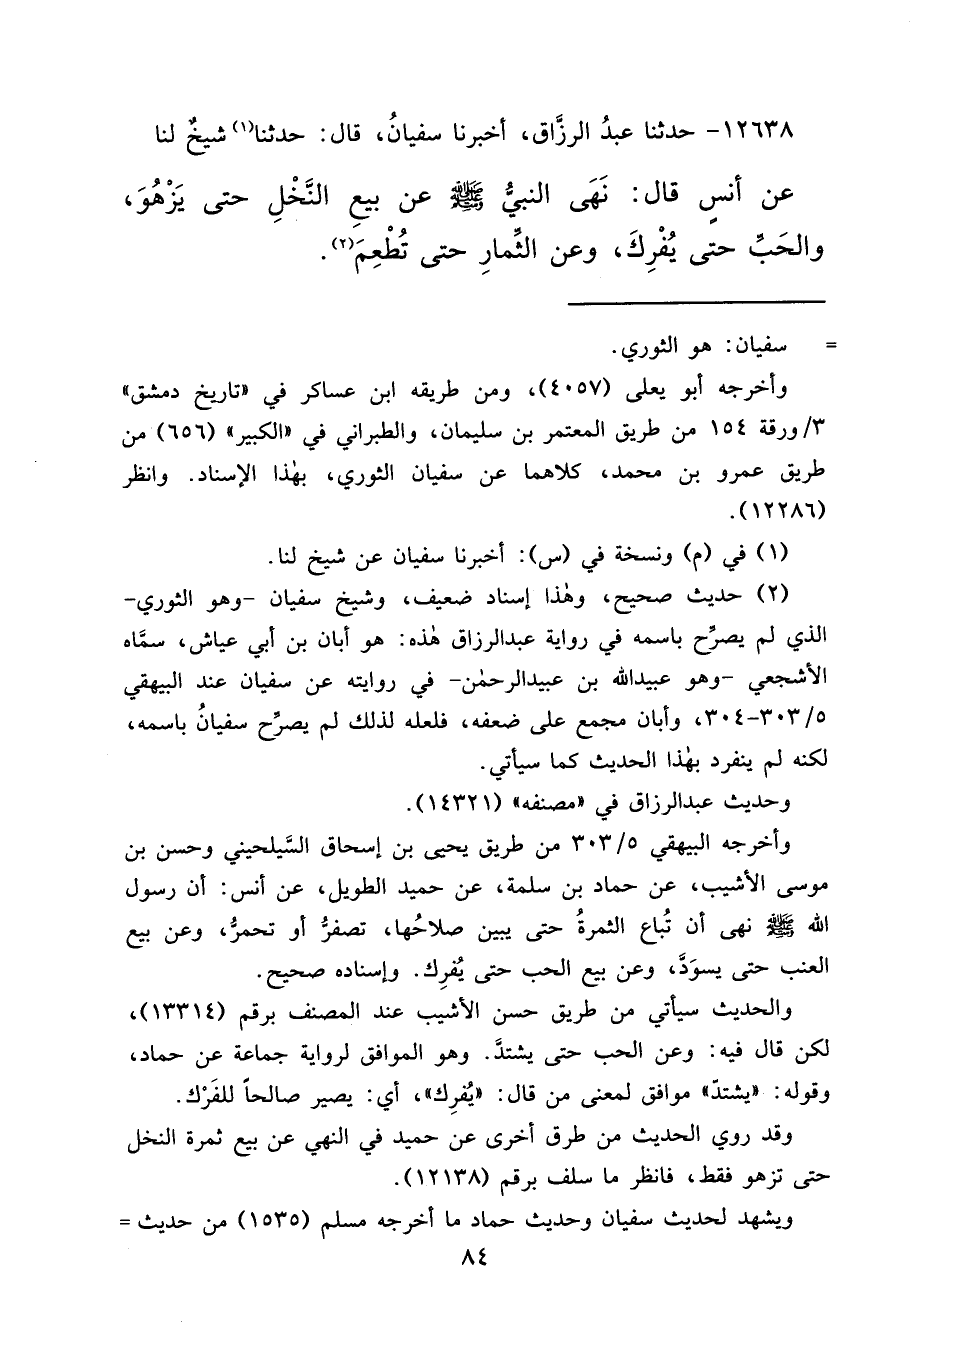 ١٢٦٣٨- حدثنا عبدُ الرزَّاق، أخبرنا سفيانُ، قال: حدثنا(١) شيخٌ لنا
عن أنسٍ قال: نَهَى النبيُّ ﷺ عن بيعِ النَّخْلِ حتى يَزْهُوَ،
والحَبِّ حتى يُفْرِكَ، وعن الثِّمارِ حتى تُطْعِمَ(٢).
= سفيان: هو الثوري.
وأخرجه أبو يعلى (٤٠٥٧)، ومن طريقه ابن عساكر في «تاريخ دمشق»
٣/ورقة ١٥٤ من طريق المعتمر بن سليمان، والطبراني في «الكبير» (٦٥٦) من
طريق عمرو بن محمد، كلاهما عن سفيان الثوري، بهٰذا الإسناد. وانظر
(١٢٢٨٦).
(١) في (م) ونسخة في (س): أخبرنا سفيان عن شيخ لنا.
(٢) حديث صحيح، وهٰذا إسناد ضعيف، وشيخ سفيان -وهو الثوري-
الذي لم يصرِّح باسمه في رواية عبدالرزاق هٰذه: هو أبان بن أبي عياش، سمَّاه
الأشجعي -وهو عبيدالله بن عبيدالرحمٰن- في روايته عن سفيان عند البيهقي
٥/٣٠٣-٣٠٤، وأبان مجمع على ضعفه، فلعله لذلك لم يصرِّح سفيانُ باسمه،
لكنه لم ينفرد بهٰذا الحديث كما سيأتي.
وحديث عبدالرزاق في «مصنفه» (١٤٣٢١).
وأخرجه البيهقي ٥/٣٠٣ من طريق يحيى بن إسحاق السَّيلحيني وحسن بن
موسى الأشيب، عن حماد بن سلمة، عن حميد الطويل، عن أنس: أن رسول
الله ﷺ نهى أن تُباع الثمرةُ حتى يبين صلاحُها، تصفرُّ أو تحمرُّ، وعن بيع
العنب حتى يسوَدَّ، وعن بيع الحب حتى يُفرِك. وإسناده صحيح.
والحديث سيأتي من طريق حسن الأشيب عند المصنف برقم (١٣٣١٤)،
لكن قال فيه: وعن الحب حتى يشتدَّ. وهو الموافق لرواية جماعة عن حماد،
وقوله: «يشتدّ» موافق لمعنى من قال: «يُفرِك»، أي: يصير صالحاً للفَرْك.
وقد روي الحديث من طرق أخرى عن حميد في النهي عن بيع ثمرة النخل
حتى تزهو فقط، فانظر ما سلف برقم (١٢١٣٨).
ويشهد لحديث سفيان وحديث حماد ما أخرجه مسلم (١٥٣٥) من حديث =
٨٤